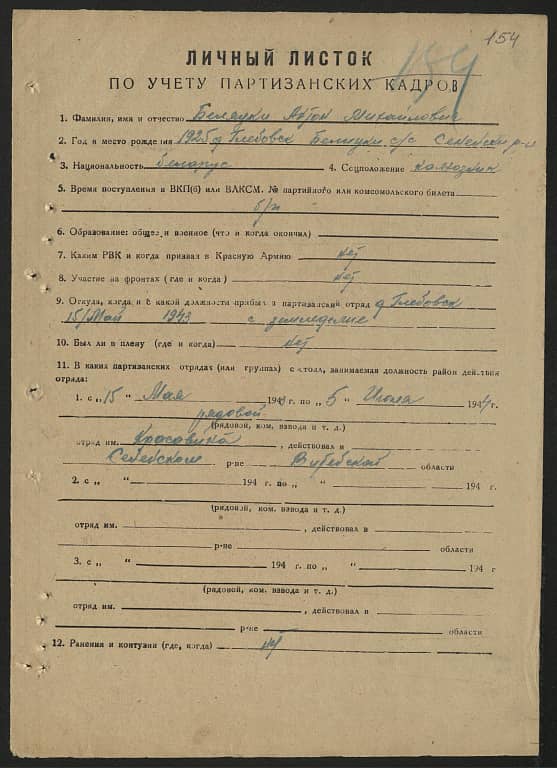 154
ЛИЧНЫЙ ЛИСТОК
ПО УЧЕТУ ПАРТИЗАНСКИХ КАДРОВ
1. Фамилия, имя и отчество Беляцки Антон Михайлович
2. Год и место рождения 1925 д. Глебовск с/с
3. Национальность беларус 4. Соцположение колхозник
5. Время поступления в ВКП(б) или ВЛКСМ. № партийного или комсомольского билета
б/п
6. Образование: общее и военное (что и когда окончил)
7. Каким РВК и когда призван в Красную Армию нет
8. Участие на фронтах (где и когда) нет
9. Откуда, когда и с какой должности прибыл в партизанский отряд д. Глебовск
15/Май 1943 с земледелие
10. Был ли в плену (где и когда) нет
11. В каких партизанских отрядах (или группах) состоял, занимаемая должность район действия
отряда:
1. с „15 " Мая 194 г. по „ 5 " Июля 1944 г.
рядовой
(рядовой, ком. взвода и т. д.)
отряд им. , действовал в
р-не Витебской области
2. с „ " 194 г. по „ " 194 г.
(рядовой, ком. взвода и т. д.)
отряд им. , действовал в
р-не области
3. с „ " 194 г. по „ " 194 г
(рядовой, ком. взвода и т. д.)
отряд им. , действовал в
р-не области
12. Ранения и контузия (где, когда) нет